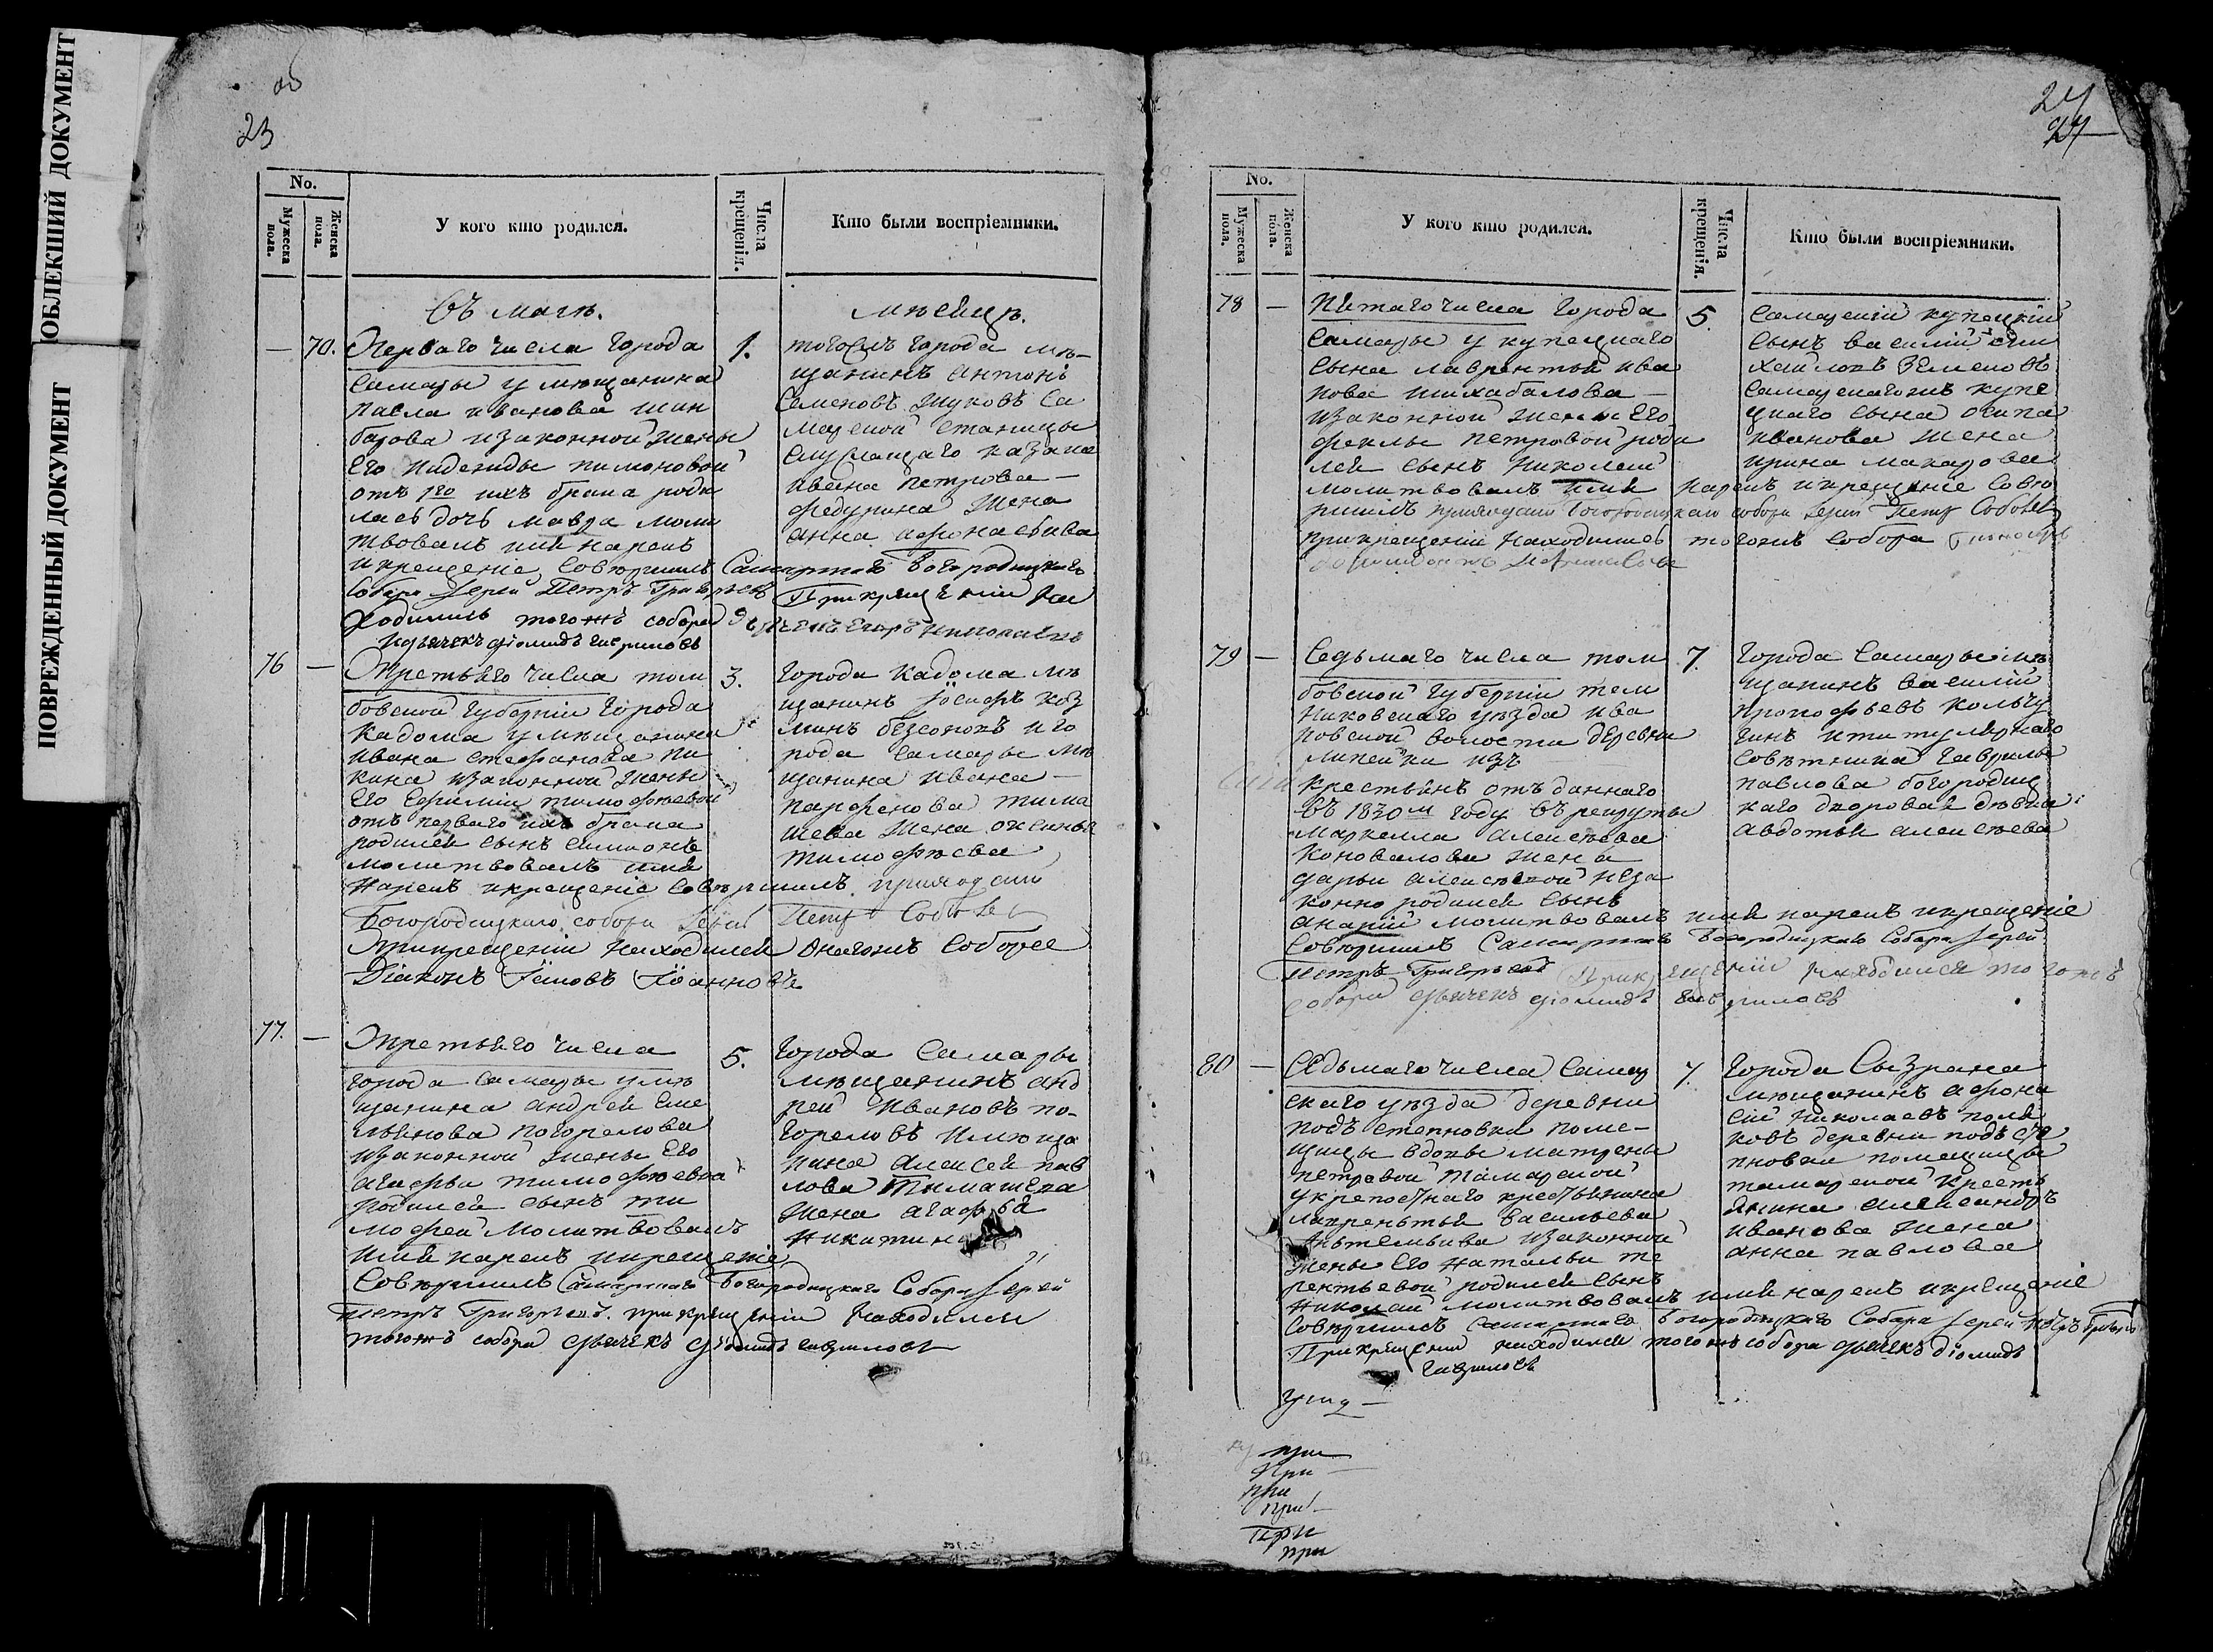 ОБЛЕКШИЙ ДОКУМЕНТ
ПОВРЕЖДЕННЫЙ ДОКУМЕНТ
об
23
No.
Мужеска пола.
Женска пола.
У кого кто родился.
Числа крещенія.
Кто были воспріемники.
Въ маіѣ.
мѣсяцѣ.
— 70. Перваго числа города
Самары у мѣщанина
Павла иванова шин
барова изаконной жены
Его Надежды пимоновой
отъ 1го ихъ брака роди
лась дочь мавра моли
твовалъ имя нарекъ
икрещеніе Совершилъ Самарскаго Богородицкаго
Собора Іерей Петръ Григорьевъ При крещеніи на
ходились тогожъ собора Егоръ николаевъ
идьячекъ діомидъ гавриловъ
1.
тогожъ города мѣ-
щанинъ антоні
Семеновъ жуковъ Са
марской станицы
Служащаго казака
ивана петрова —
федулина жена
анна афонасьива
76 — Третьяго числа там
бовской губерніи города
Кадома умѣщанина
ивана стефанова пи
кина изаконной жены
Его Ефиміи тимофѣевой
отъ перваго ихъ брака
родился сынъ симионъ
молитвовалъ имя
нарекъ икрещеніе совершилъ
Богородицкаго собора Іерей Петръ
Прикрещеніи находился онагожъ Собора
Діаконъ Іяковъ Іоанновъ
3.
города кадома мѣ
щанинъ Іосифъ коз
минъ безсоновъ иго
рода Самары мѣ
щанина ивана —
парфенова тима
шева жена оксинья
тимофѣева
77. — Третьяго числа
города Самары умѣ
щанина андрея Еме
льянова погорелова
изаконной жены Его
агафьи тимофѣевой
родился сынъ ти
мофей молитвовалъ
имя нарекъ икрещеніе
Совершилъ Самарскаго Богородицкаго Собора Іерей
Петръ Григорьевъ. при крещеніи находился
тогожъ собора дьячекъ діомидъ гавриловъ
5.
города Самары
мѣщанинъ анд
рей ивановъ по-
гореловъ имѣща
нина алексея пав
лова тимашева
жена агафья
никитина
24
24
No.
Мужеска пола.
Женска пола.
У кого кто родился.
Числа крещенія.
Кто были воспріемники.
78 — Пятаго числа города
Самары у купецкаго
сына лаврентья ива
нова шихабалова —
изаконной жены Его
феклы петровой роди
лся сынъ николай
молитвовалъ имя нарекъ икрещеніе Совер
шилъ Богородицкаго собора Іерей Петръ
прикрещеніи находились тогожъ Собора
5.
Самарскій купецкій
сынъ василій
хайловъ
Самарскагожъ купе
цкаго сына осипа
иванова жена
ирина макарова
79 — Седьмаго числа там
бовской губерніи тем
никовскаго уѣзда ива
новской волости деревни
изъ
крестьянъ отъданнаго
въ 1830м году въ рекруты
маркелла алексѣева
Коновалова жена
дарьи алексѣевой неза
конно родился сынъ
ананій молитвовалъ имя нарекъ икрещеніе
Совершилъ Самарскаго Богородицкаго Собора Іерей
Петръ Григорьевъ При крещеніи находился тогожъ
собора дьячекъ діомидъ гавриловъ
7.
города Самары мѣ
щанинъ василій
прокофьевъ кольчу
гинъ ититулярнаго
совѣтника гаврилы
павлова богородиц
каго дворовая дѣвка
авдотья алексѣева
80 — Седьмаго числа Самар
скаго уѣзда деревни
подъстепновки поме-
щицы вдовы матрены
петровой тамарской
укрепостнаго крестьянина
лаврентья васильева
изаконной
жены Его натальи те
рентьевой родился сынъ
николай молитвовалъ имя нарекъ икрещеніе
Совершилъ Самарскаго Богородицкаго Собора Іерей Петръ
При крещеніи находился тогожъ собора дьячекъ діомидъ
гавриловъ
7.
города Сызрана
мѣщанинъ афона
сій николаевъ поля
ковъ деревни подъсте
пновки помещицы
тамарской крестья
янина александръ
иванова жена
анна павлова
при
При
при
при
При
при